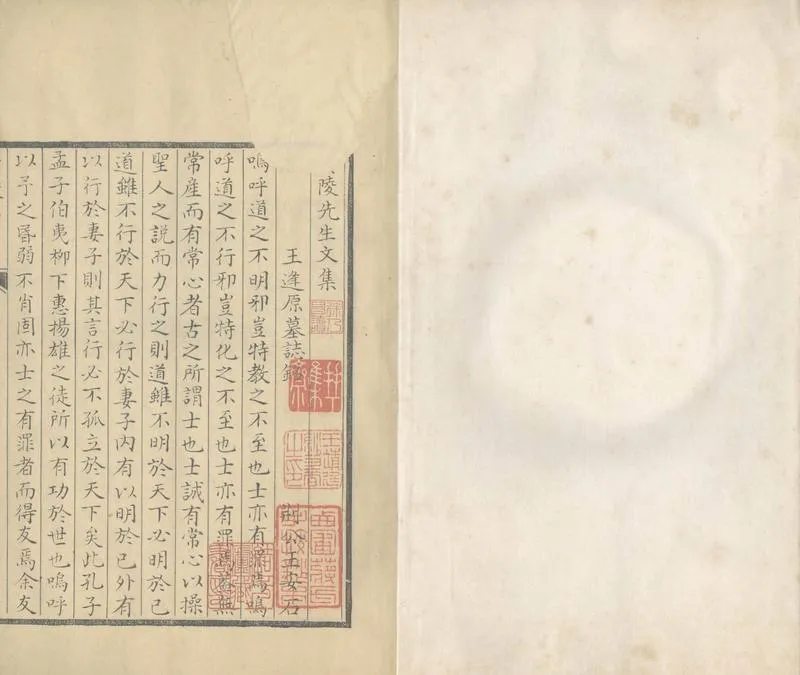 陵先生文集
王逢原墓誌銘
荆公王安石
嗚呼道之不明邪豈特教之不至也士亦有罪焉嗚
呼道之不行邪豈特化之不至也士亦有罪焉蓋無
常產而有常心者古之所謂士也士誠有常心以操
聖人之說而力行之則道雖不明於天下必明於己
道雖不行於天下必行於妻子內有以明於己外有
以行於妻子則其言行必不孤立於天下矣此孔子
孟子伯夷柳下惠揚雄之徒所以有功於世也嗚呼
以予之昬弱不肖固亦士之有罪者而得友焉余友